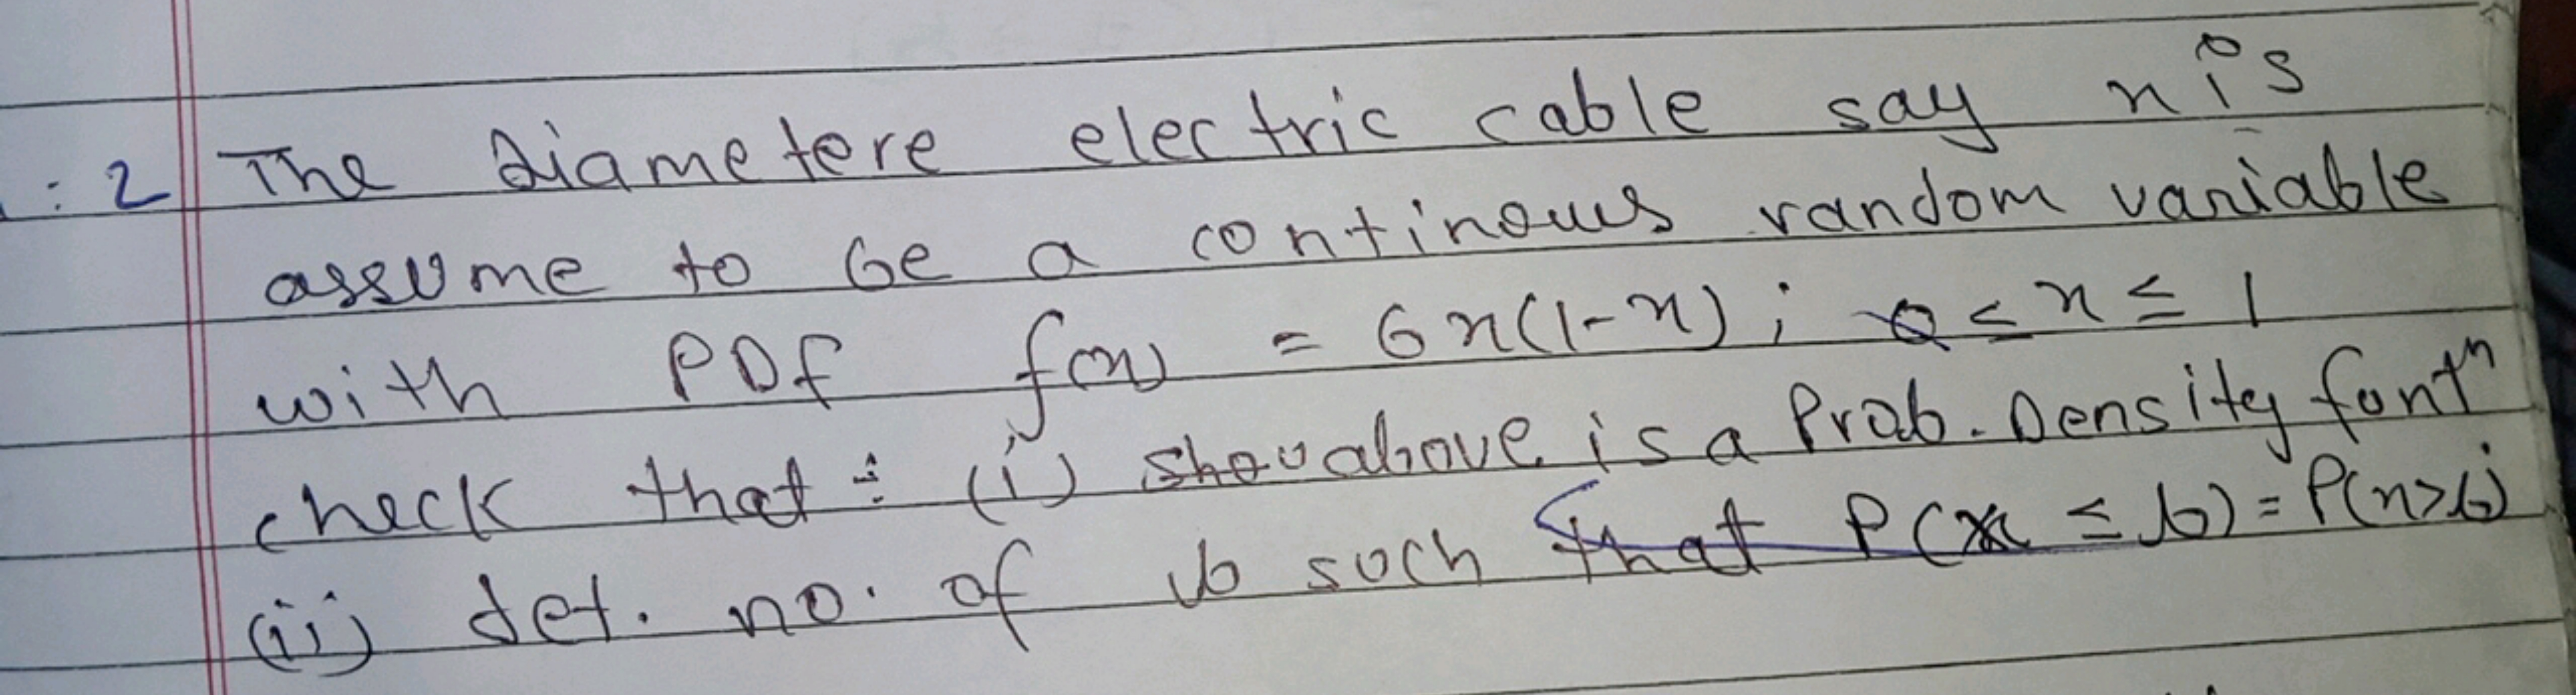 : 2 The Diametere electric cable say x is
assume to be a continous random variable
with PDF f(x) = 6x(1-x) ; 0 ≤ x ≤ 1
check that : (i) show above is a Prob. Density funtⁿ
(ii) det. no. of b such that P(x ≤ b) = P(x>b)